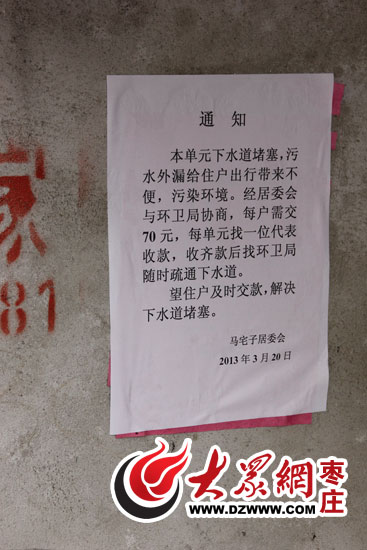 通 知
本单元下水道堵塞，污
水外漏给住户出行带来不
便，污染环境。经居委会
与环卫局协商，每户需交
70 元，每单元找一位代表
收款，收齐款后找环卫局
随时疏通下水道。
望住户及时交款，解决
下水道堵塞。
马宅子居委会
2013 年 3 月 20 日
家
81
大眾網 枣庄
WWW.DZWWW.COM